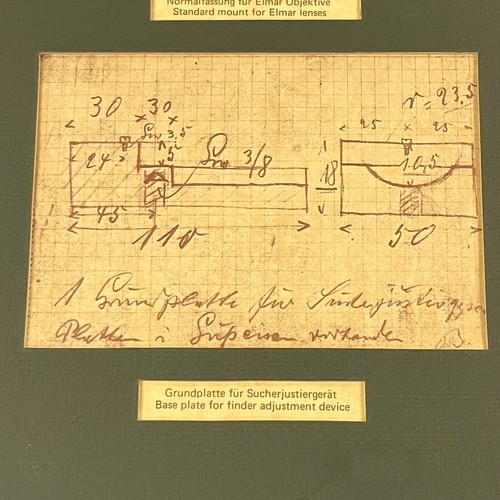 Normalfassung für Elmar Objektive
Standard mount for Elmar lenses
30 30
r = 23.5
25 25
Gew 3,5
5
24
Gew 3/8
18
10,5
45
110
50
1 Grundplatte für Sucherjustiergerät
Platten i. Gußeisen vorhanden
Grundplatte für Sucherjustiergerät
Base plate for finder adjustment device